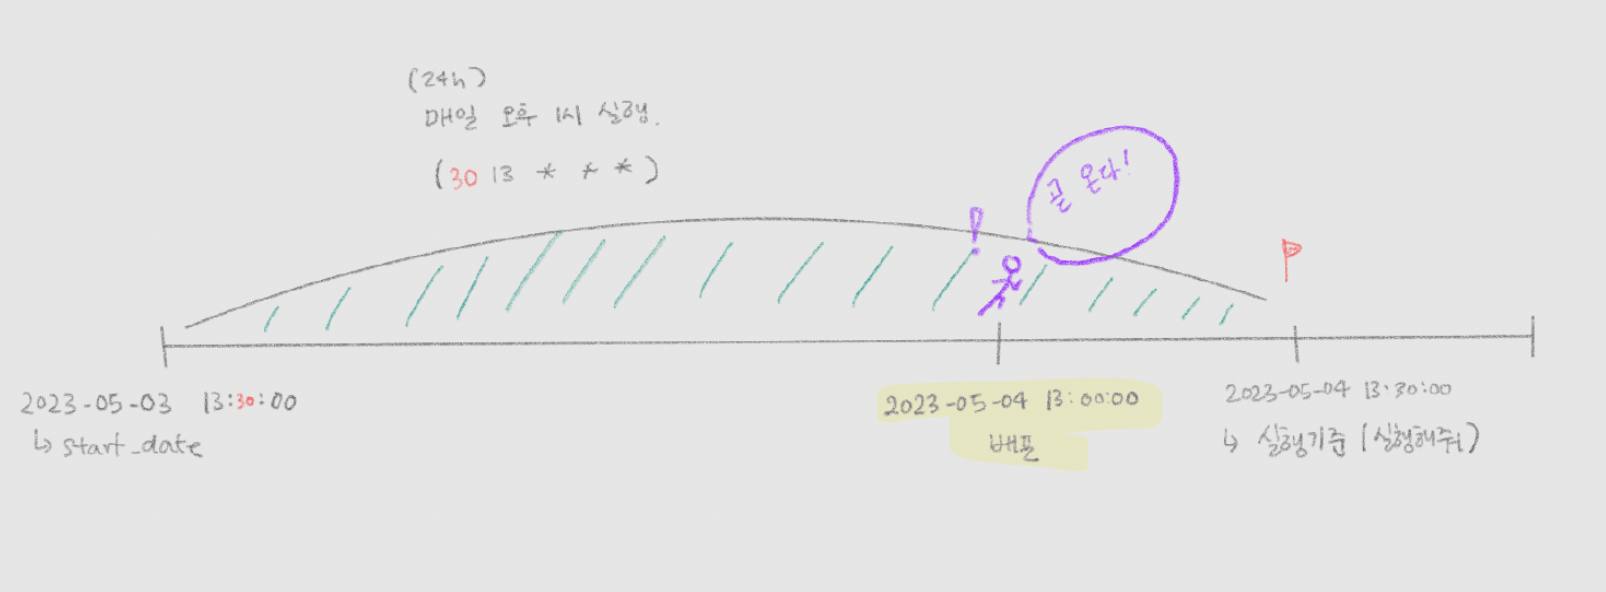 (24h)
매일 오후 1시 실행.
(30 13 * * *)
!
곧 온다!
2023-05-03 13:30:00
↳ start_date
2023-05-04 13:00:00
배포
2023-05-04 13:30:00
↳ 실행기준 (실행해줘)